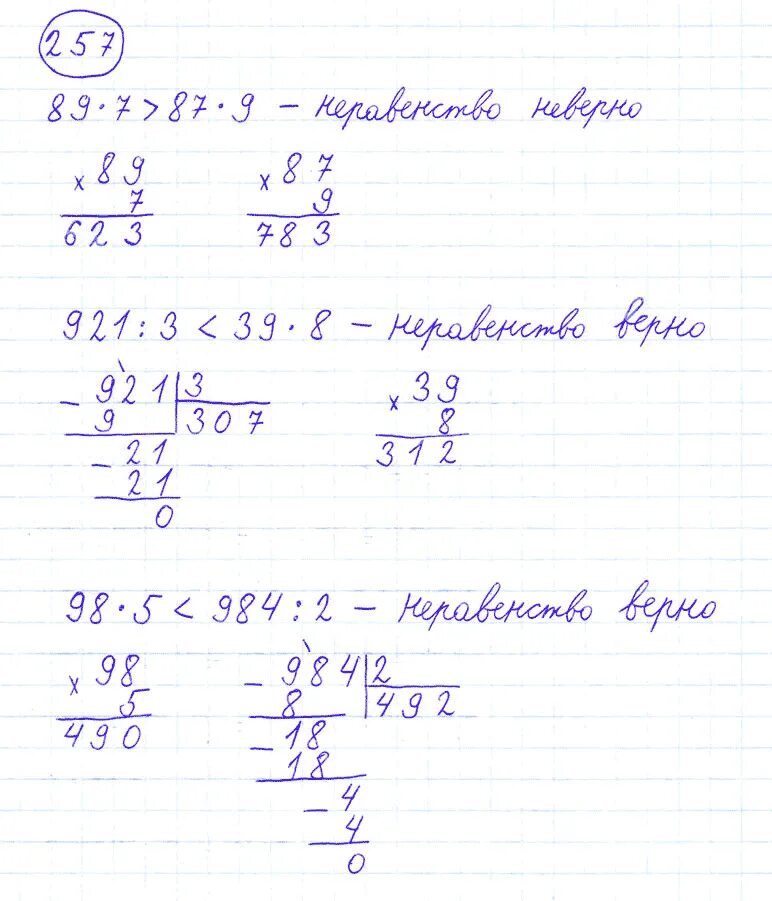 257
89·7>87·9 – неравенство неверно
× 89   × 87
7   9
623   783
921:3 < 39·8 – неравенство верно
– 921 | 3   × 39
9   307   8
– 21   312
21
0
98·5 < 984:2 – неравенство верно
× 98   – 984 | 2
5   8   492
490   – 18
18
– 4
4
0